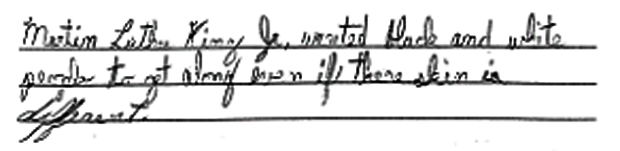 Martin Luther King Jr. wanted black and white
people to get along even if there skin is
different.